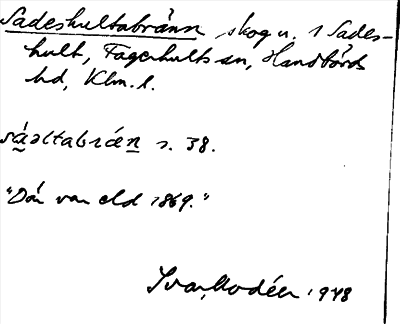 Sadeshultabränn skog u. 1 Sades-
hult, Fagerhults sn, Handbörds
hd, Klm. l.
sá̰əltabrán s. 38.
"Där var eld 1869."
Ivar Modéer 1948